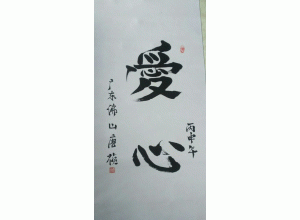 愛心
丙申年
广东佛山